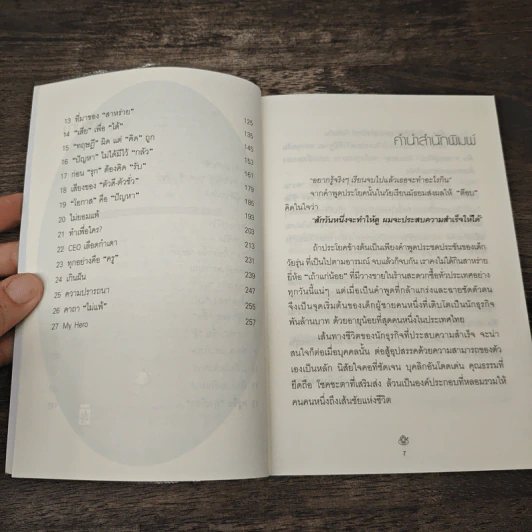 13 ที่มาของ "สาหร่าย" 125
14 "เสีย" เพื่อ "ได้" 135
15 "ทฤษฎี" ผิด แต่ "คิด" ถูก 145
16 "ปัญหา" ไม่ได้มีไว้ "กลัว"
17 ก่อน "รุก" ต้องคิด "รับ"
18 เสียงของ "ตัวดี-ตัวชั่ว"
19 "โอกาส" คือ "ปัญหา"
20 ไม่ยอมแพ้ 193
21 ทำเพื่อใคร? 203
22 CEO เลือดกำเดา 213
23 ทุกอย่างคือ "ครู" 221
24 เกินฝัน 239
25 ความปรารถนา 247
26 คาถา "ไม่แพ้" 255
27 My Hero 257
คำนำสำนักพิมพ์
"อยากรู้จริงๆ เรียนจบไปแล้วเธอจะทำอะไรกิน"
จากคำพูดประโยคนั้นในวัยเรียนมัธยมส่งผลให้ "ต๊อบ"
คิดในใจว่า
"สักวันหนึ่งจะทำให้ดู ผมจะประสบความสำเร็จให้ได้"
ถ้าประโยคข้างต้นเป็นเพียงคำพูดประชดประชันของเด็ก
วัยรุ่น ที่เป็นไปตามอารมณ์ จบแล้วก็จบกัน เราคงไม่ได้กินสาหร่าย
ยี่ห้อ "เถ้าแก่น้อย" ที่มีวางขายในร้านสะดวกซื้อทั่วประเทศอย่าง
ทุกวันนี้แน่ๆ แต่เมื่อคำพูดที่กล้าแกร่งและฉายชัดตัวตน
จึงเป็นจุดเริ่มต้นของเด็กผู้ชายคนหนึ่งที่เติบโตเป็นนักธุรกิจ
พันล้านบาท ด้วยอายุน้อยที่สุดคนหนึ่งในประเทศไทย
เส้นทางชีวิตของนักธุรกิจที่ประสบความสำเร็จ จะน่า
สนใจก็ต่อเมื่อบุคคลนั้น ต่อสู้อุปสรรคด้วยความสามารถของตัว
เองเป็นหลัก นิสัยใจคอที่ชัดเจน บุคลิกอันโดดเด่น คุณธรรมที่
ยึดถือ โชคชะตาที่เสริมส่ง ล้วนเป็นองค์ประกอบที่หลอมรวมให้
คนคนหนึ่งถึงเส้นชัยแห่งชีวิต
7